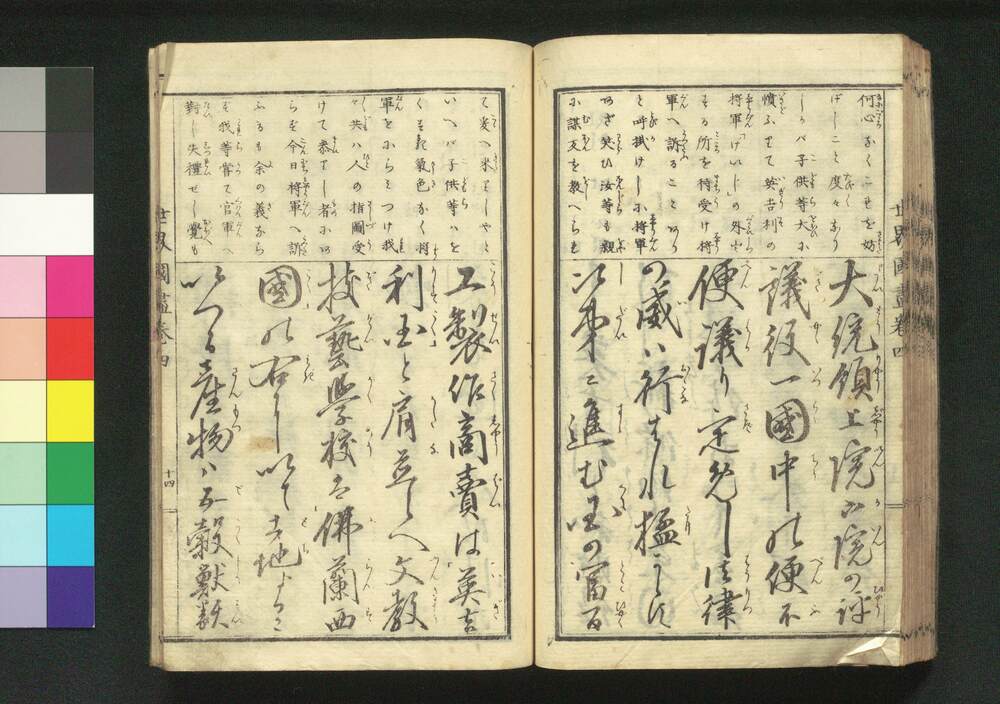 何心なくこせを妨
げしこと度々あり
しかバ子供等大に
憤ふりて英吉利の
将軍「げいじの外に
る所を待受け将
軍へ訴ることあり
と呼掛けしに将軍
打笑ひ汝等も親
に謀反を教へられ
大統領上院下院の評
議役一國中の便不
便議り定免し法律
の威ハ行はれ猛からに
次第に進む国の富百
世界國盡卷四
て爰へ来りしやと
いへバ子供等ハを
く気色なく将
軍をにらミつけ我
々共ハ人の指圖受
けて参りし者にあ
らず今日将軍へ訴
ふるも余の義なら
ず我等嘗て官軍へ
對し失禮せし覺も
工製作商賣は英吉
利国と肩並しへ文教
技藝学校は佛蘭西
國の右にいで土地より
いづる産物ハ五穀獣類
世界國盡卷四
十四